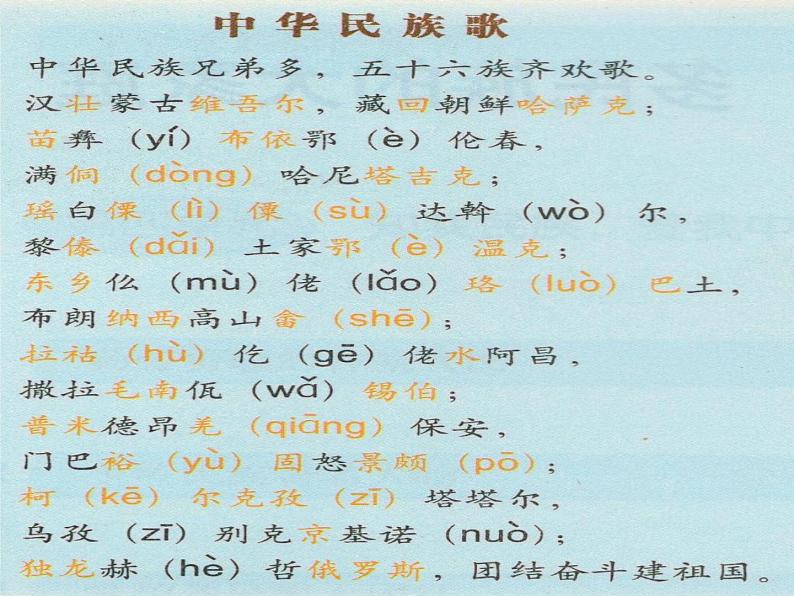 中华民族歌
中华民族兄弟多，五十六族齐欢歌。
汉壮蒙古维吾尔，藏回朝鲜哈萨克；
苗彝（yí）布依鄂（è）伦春，
满侗（dòng）哈尼塔吉克；
瑶白傈（lì）僳（sù）达斡（wò）尔，
黎傣（dǎi）土家鄂（è）温克；
东乡仫（mù）佬（lǎo）珞（luò）巴土，
布朗纳西高山畲（shē）；
拉祜（hù）仡（gē）佬水阿昌，
撒拉毛南佤（wǎ）锡伯；
普米德昂羌（qiāng）保安，
门巴裕（yù）固怒景颇（pō）；
柯（kē）尔克孜（zī）塔塔尔，
乌孜（zī）别克京基诺（nuò）；
独龙赫（hè）哲俄罗斯，团结奋斗建祖国。